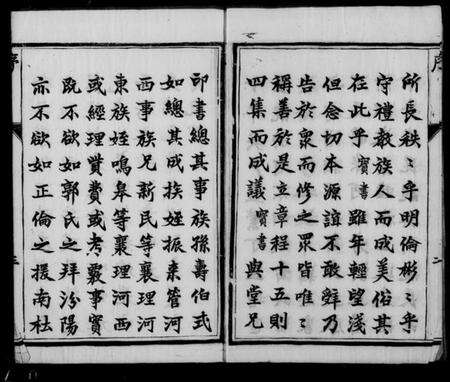 序
所長秩〻乎明倫彬〻乎
守禮教族人而成美俗其
在此乎寶書雖年輕望淺
但念切本源誼不敢辤乃
告於衆而修之眾皆唯〻
稱善於是立章程十五則
四集而成議寶書與堂兄
二
印書總其事族孫壽伯弍
如總其成族姪振東管河
西事族兄新民等襄理河
東族姪鳴皋等襄理河西
或經理貲費或考覈事實
既不欲如郭氏之拜汾陽
亦不欲如正倫之援南杜